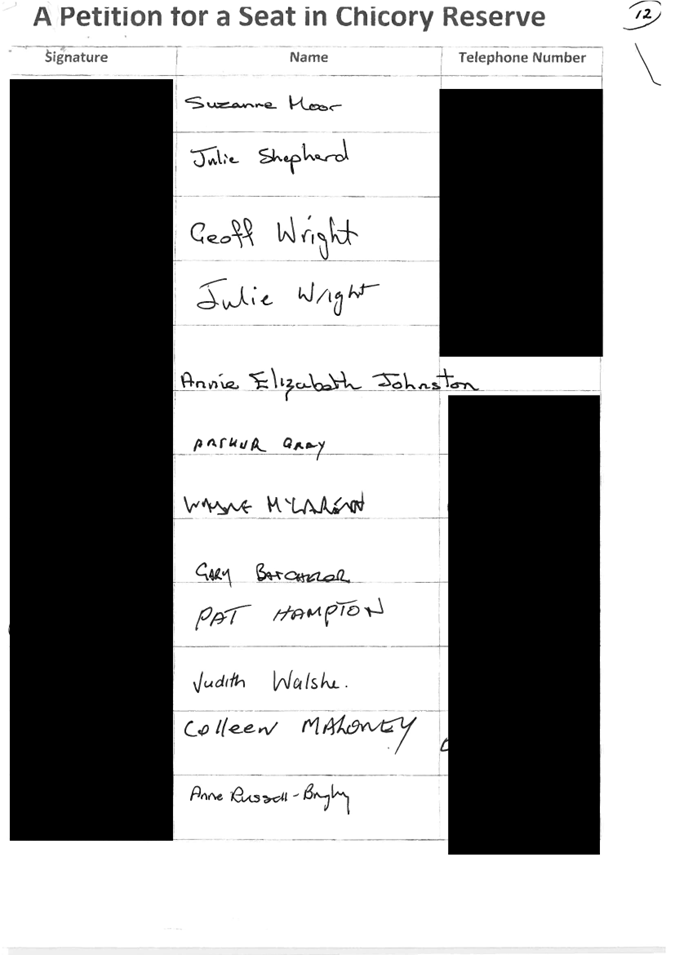 A Petition for a Seat in Chicory Reserve
12
Signature Name Telephone Number
Suzanne Moor
Julie Shepherd
Geoff Wright
Julie Wright
Annie Elizabeth Johnston
ARTHUR GRAY
WAYNE MCLAREN
GARY BATCHELOR
PAT HAMPTON
Judith Walshe.
Colleen MALONEY
Anne Russell-